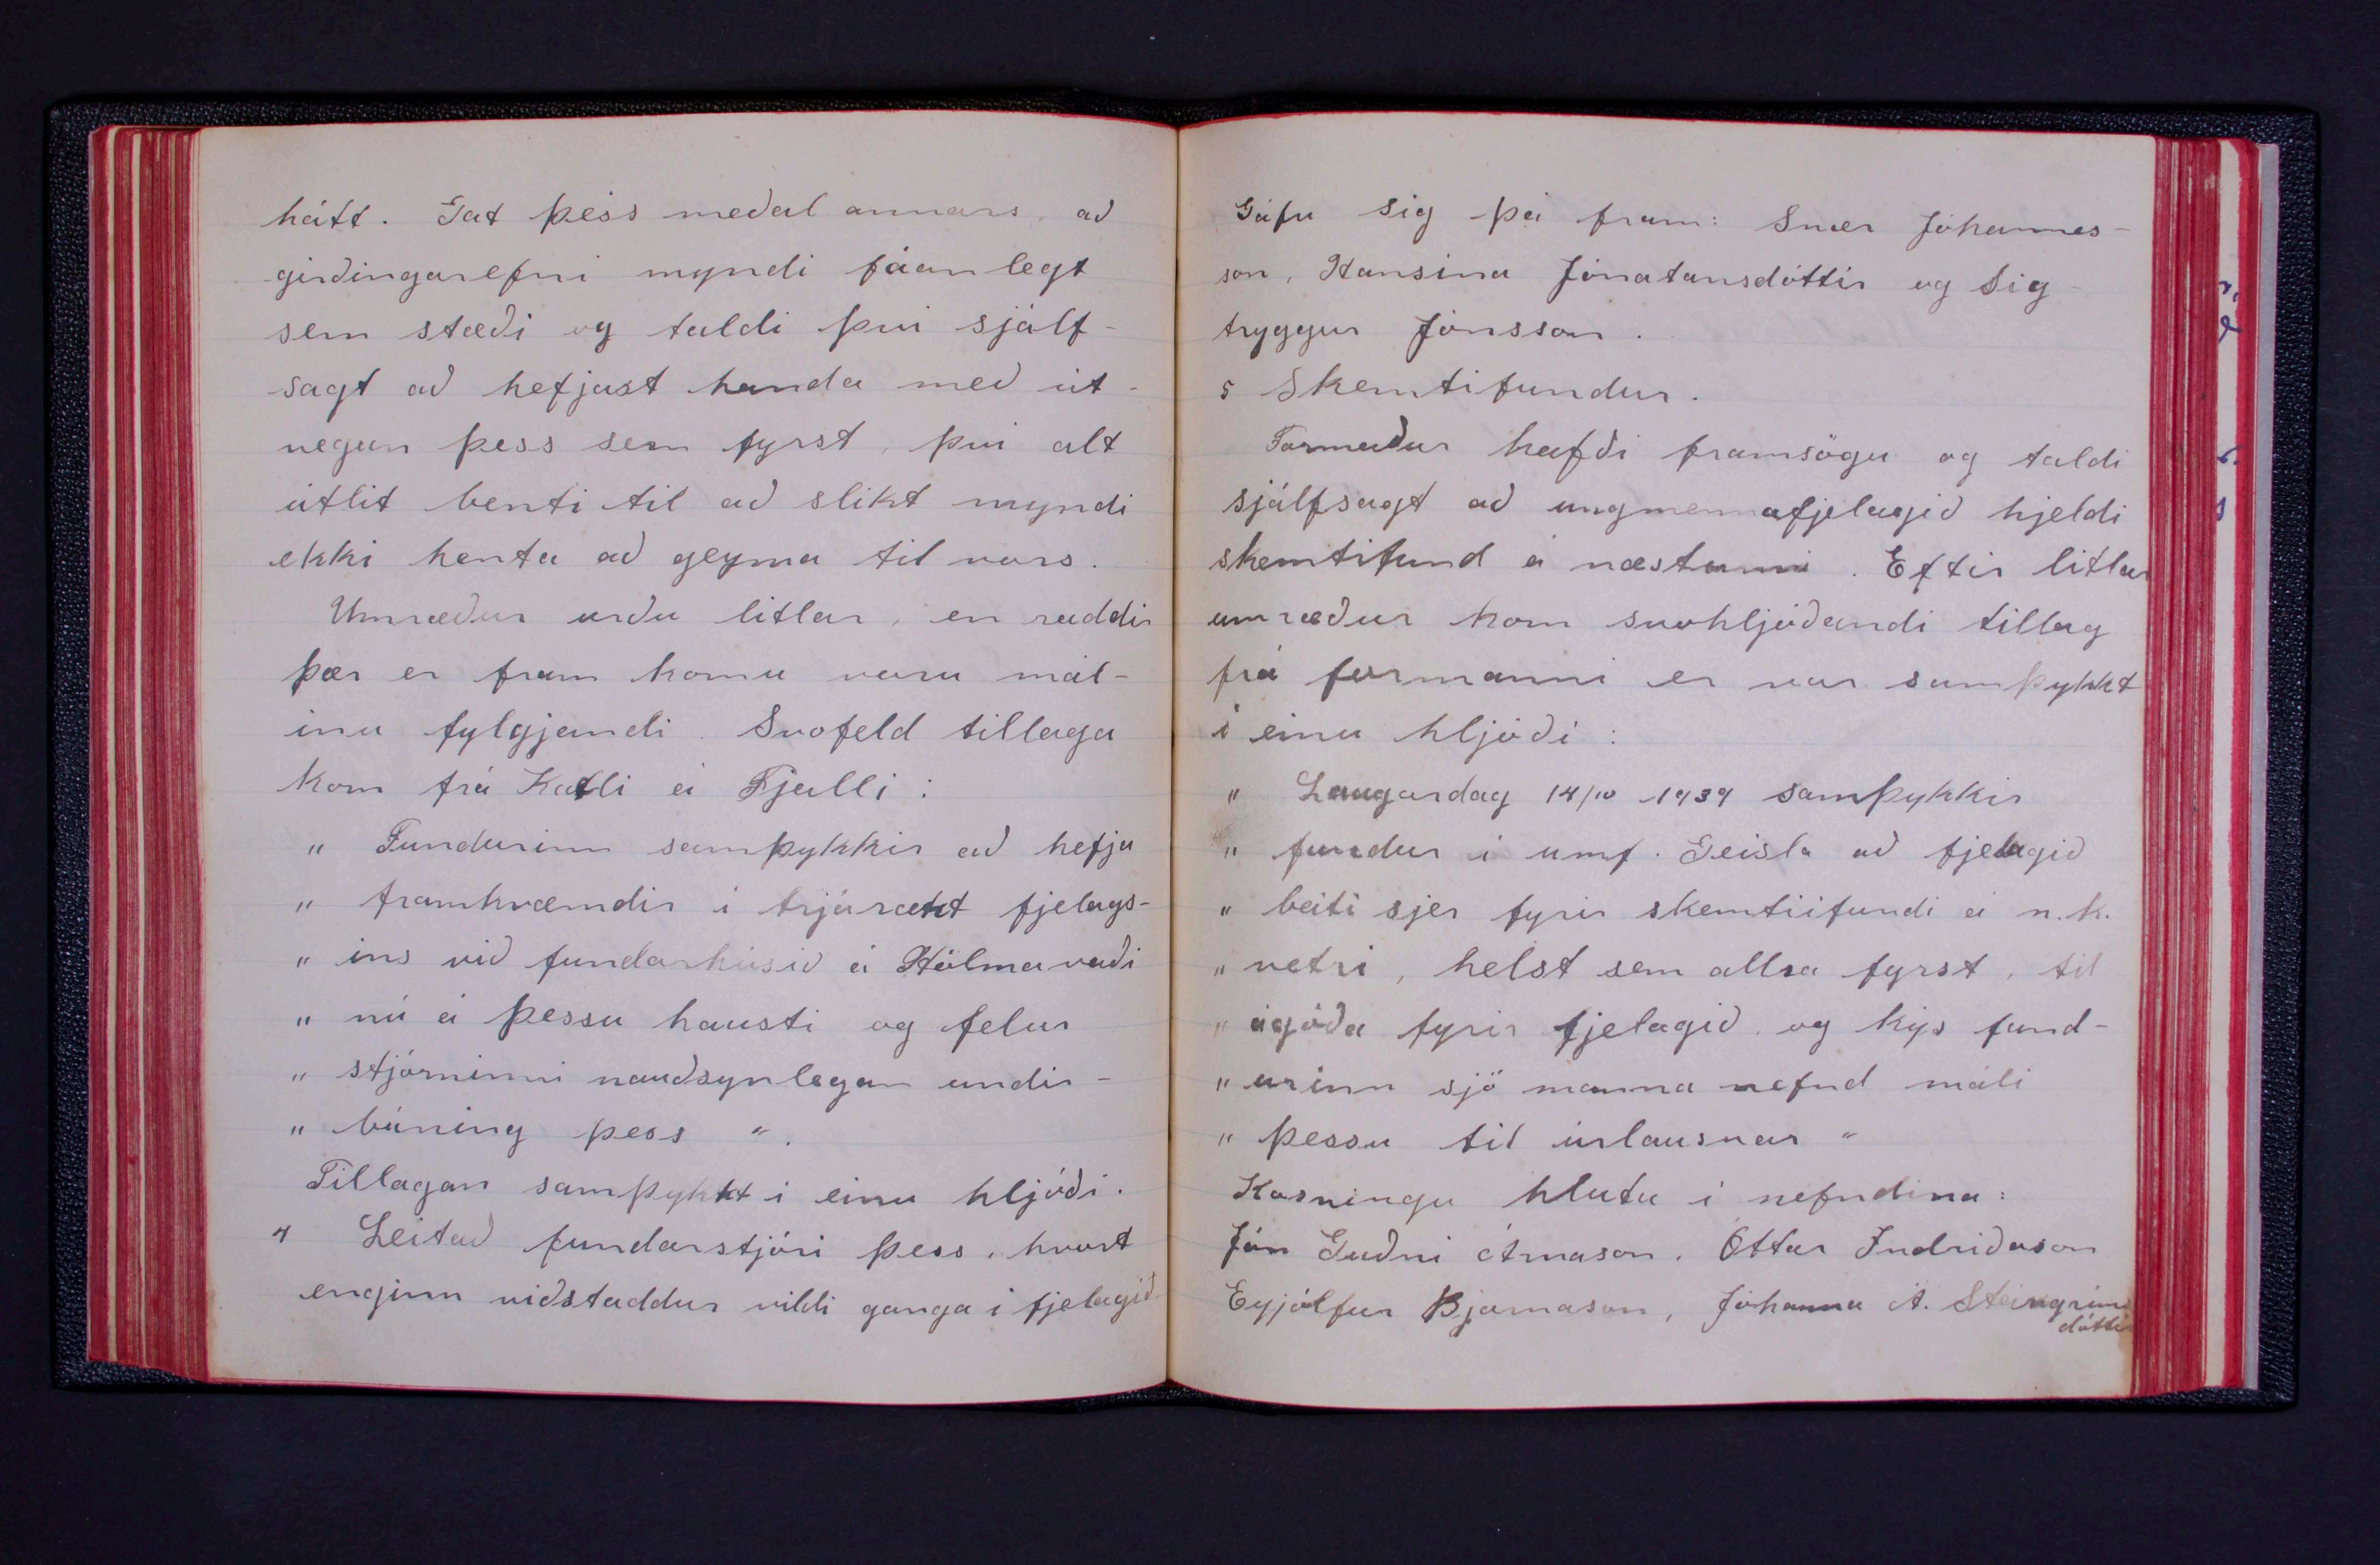 hátt. Gat þess meðal annars, að
girðingarefni myndi fáanlegt
sem stæði og taldi því sjálf-
sagt að hefjast handa með út-
vegun þess sem fyrst, því alt
útlit benti til að slíkt myndi
ekki henta að geyma til vors.
Umræður urðu litlar, en raddir
þær er fram komu voru mál-
inu fylgjandi. Svofeld tillaga
kom frá Katli á Fjalli:
" Fundurinn samþykkir að hefja
" framkvæmdir í trjárækt fjelags-
" ins við fundarhúsið á Hólmavaði
" nú á þessu hausti og felur
" stjórninni nauðsynlegan undir-
" búning þess ".
Tillagan samþykkt í einu hljóði.
4 Leitað fundarstjóri þess, hvort
enginn viðstaddur vildi ganga í fjelagið
Gáfu sig þá fram: Snær Jóhannes-
son, Hansína Jónatansdóttir og Sig-
tryggur Jónsson.
5 Skemtifundur.
Formaður hafði framsögu og taldi
sjálfsagt að ungmennafjelagið hjeldi
skemtifund á næstunni. Eftir litlar
umræður kom svohljóðandi tillag
frá formanni er var samþykkt
í einu hljóði:
" Laugardag 14/10 1939 samþykkir
" fundur í umf. Geisla að fjelagið
" beiti sjer fyrir skemtiifundi á n.k.
" vetri, helst sem allra fyrst, til
" ágóða fyrir fjelagið og kýs fund-
" urinn sjö manna nefnd máli
" þessu til úrlausnar "
Kosningu hlutu í nefndina:
Jón Guðni Árnason. Óttar Indriðason
Eyjólfur Bjarnason, Jóhanna A. Steingríms
dóttir